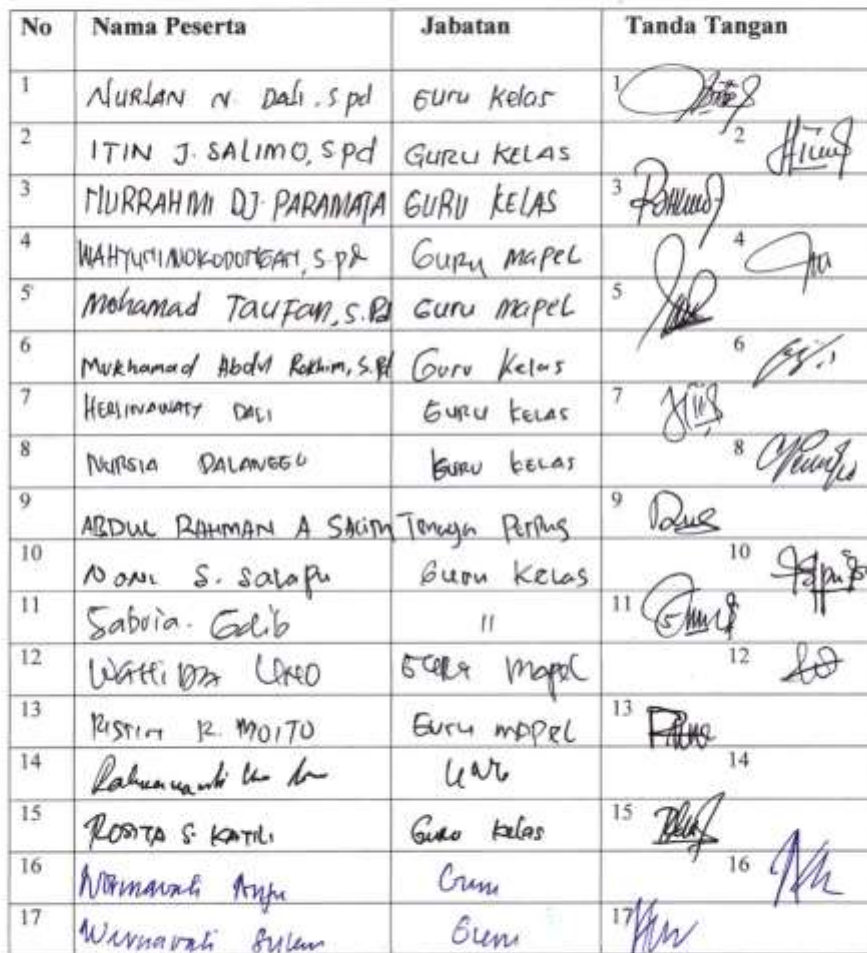 No Nama Peserta Jabatan Tanda Tangan
1 NURLAN N. DALI, S.pd Guru Kelas 1
2 ITIN J. SALIMO, S.Pd GURU KELAS 2
3 NURRAHMI DJ. PARAMATA GURU KELAS 3
4 WAHYUNI MOKODONGAN, S.Pd Guru MAPEL 4
5 Mohamad TAUFAN, S.Pd Guru MAPEL 5
6 Mukhamad Abdul Rokhim, S.Pd Guru Kelas 6
7 HERLINAWATY DALI GURU KELAS 7
8 NURSIA DALANGGU GURU KELAS 8
9 ABDUL RAHMAN A SALIM Tenaga Perpus 9
10 NONI S. Salapu Guru KELAS 10
11 Sabria. Golib " 11
12 WAHIDA UNO GURU Mapel 12
13 RISTIN R. MOITO Guru MAPEL 13
14 14
15 ROSITA S. KATILI Guru kelas 15
16 Guru 16
17 Guru 17